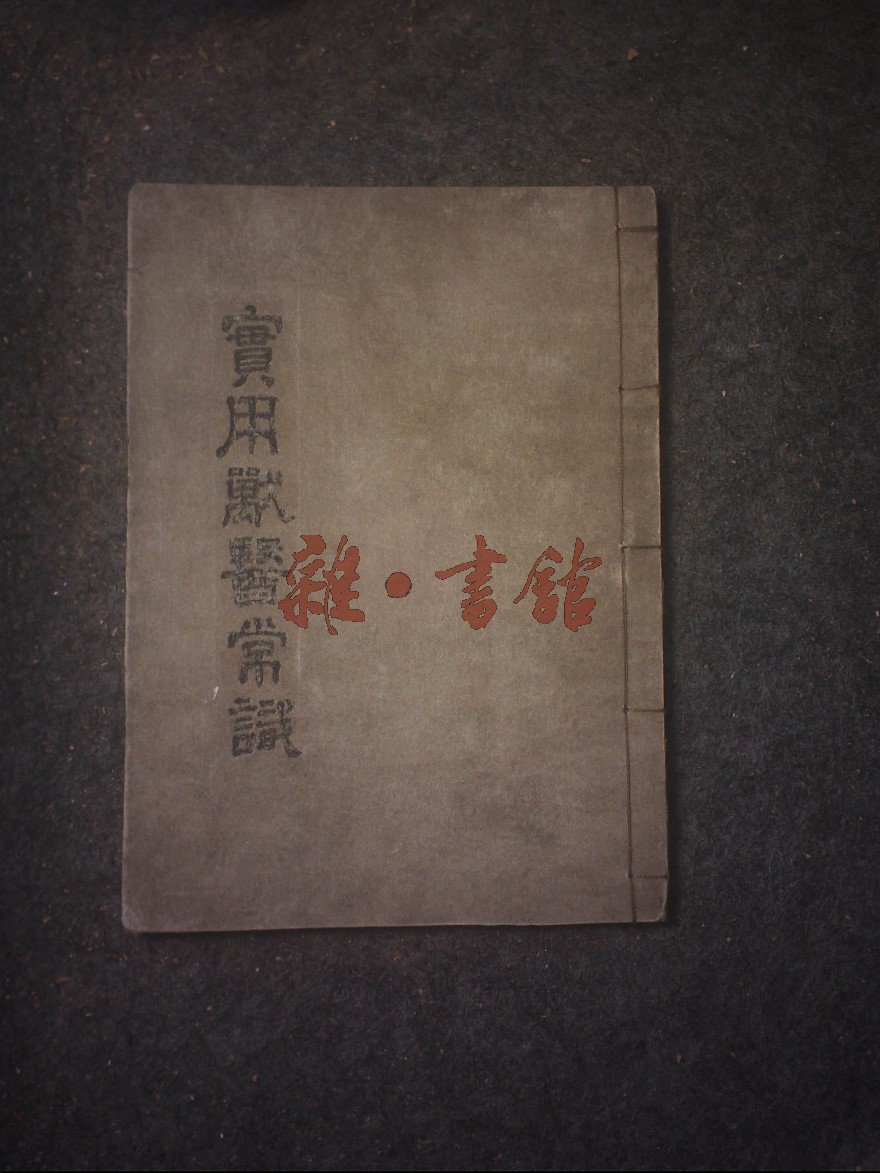 實用獸醫常識
雜·書館